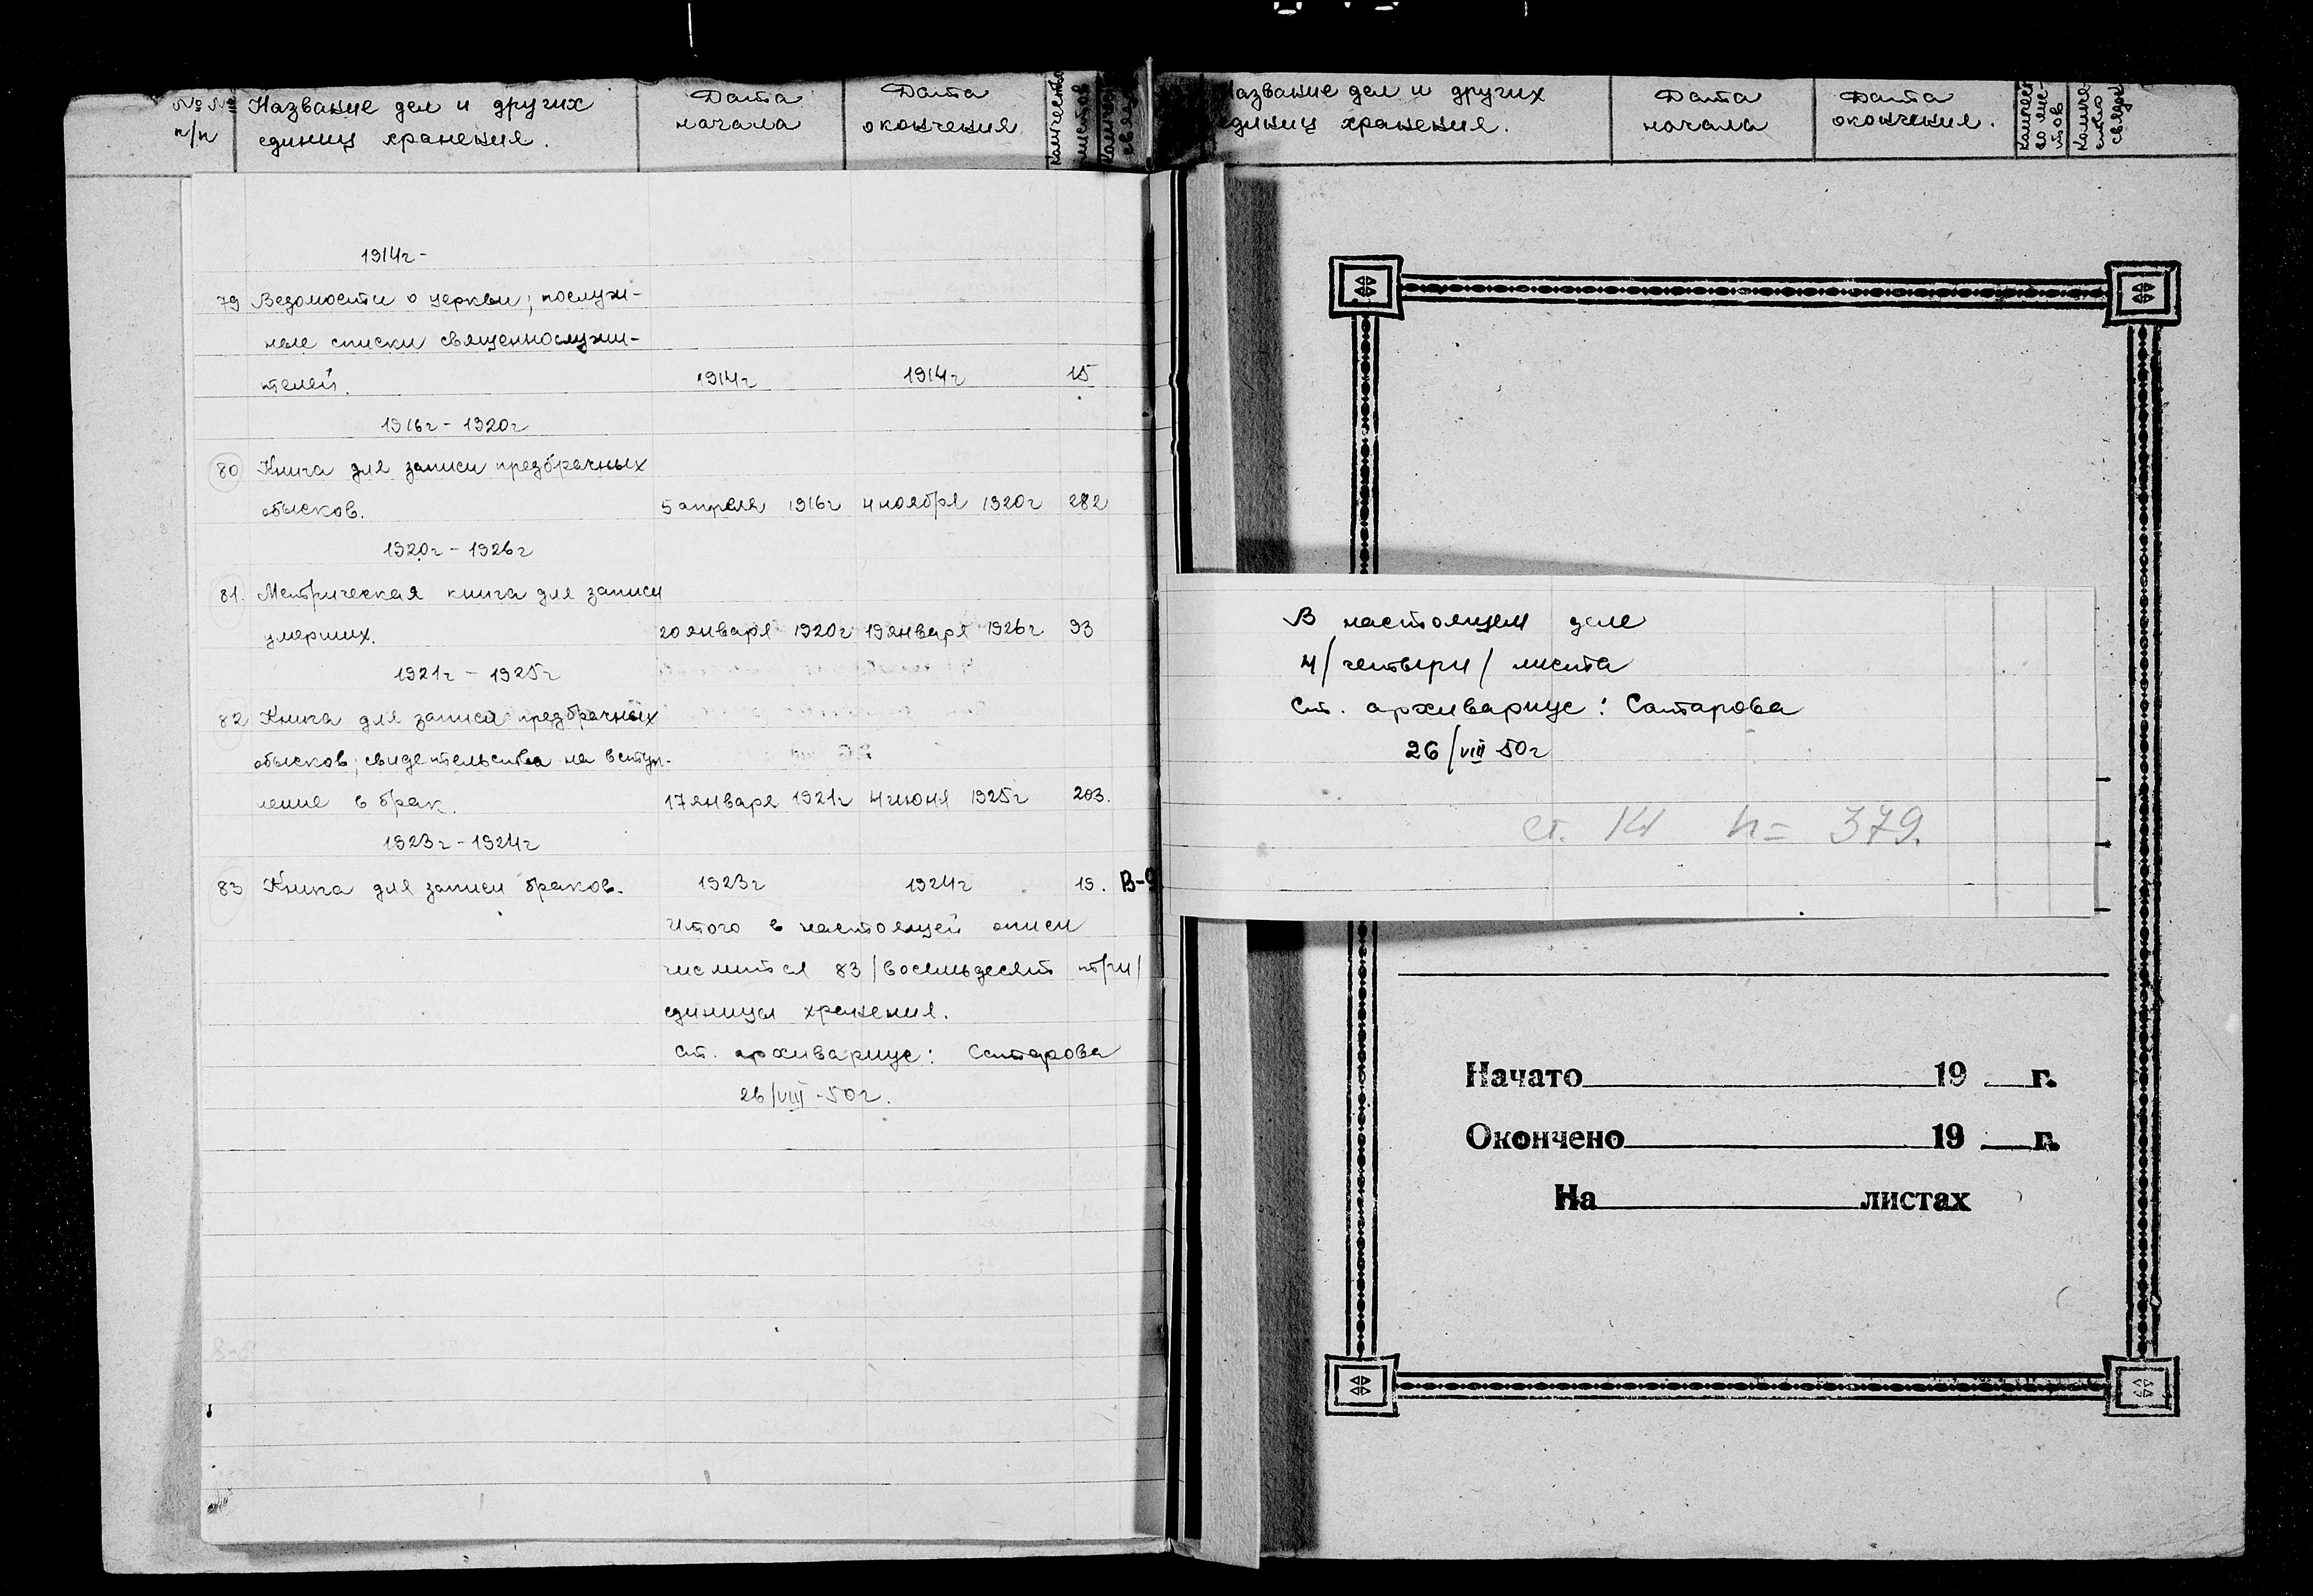 №№ п/п
Название дел и других
единиц хранения.
Дата
начала
Дата
окончения
Количество
листов
1914г-
79 Ведомости о церкви; послуж-
ные списки священнослужи-
телей. 1914г 1914г 15
1916г - 1920г
80 Книга для записи предбрачных
обысков. 5 апреля 1916г 4 ноября 1920г 282
1920г - 1926г
81. Метрическая книга для записи
умерших. 20 января 1920г 19 января 1926г 93
1921г - 1925г
82 Книга для записи предбрачных
обысков; свидетельства на вступ-
ление в брак. 17 января 1921г 4 июня 1925г 203.
1923г - 1924г
83 Книга для записи браков. 1923г 1924г 19. В-9
Итого в настоящей описи
числится 83 /восемьдесят три/
единицы хранения.
Ст. архивариус: Сатарова
26/VIII-50г.
Название дел и других
единиц хранения.
Дата
начала
Дата
окончения.
В настоящем деле
4/четыри/ листа
Ст. архивариус: Сатарова
26/VIII 50г
ст. 14 н= 379.
Начато 19 г.
Окончено 19 г.
На листах